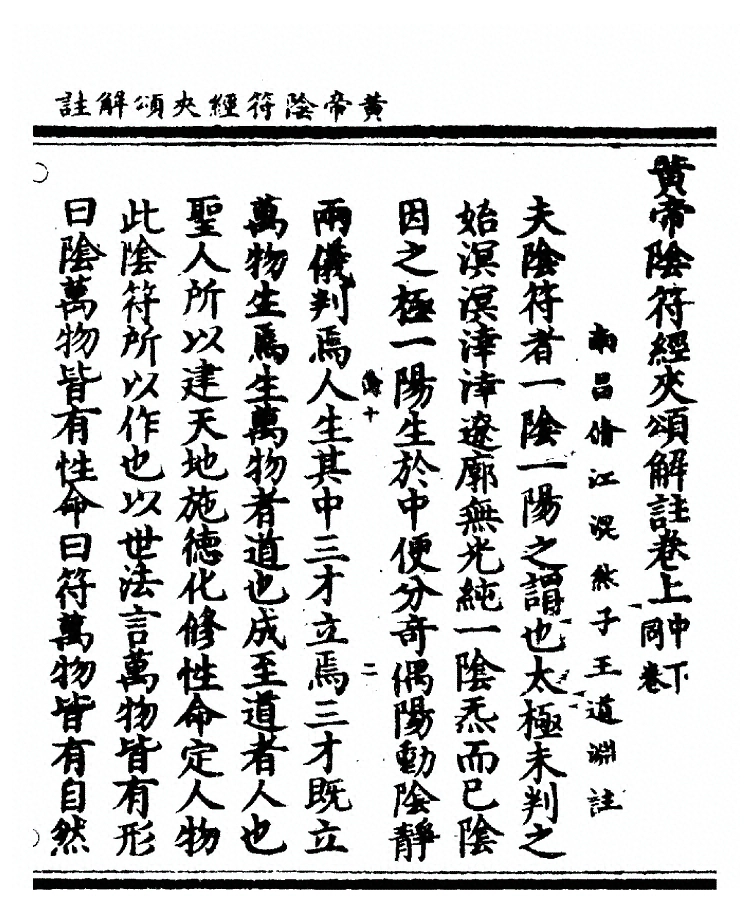 黃帝陰符經夾頌解註
黃帝陰符經夾頌解註卷上中下同卷
南昌脩江混然子王道淵註
夫陰符者一陰一陽之謂也太極未判之
始溟溟涬涬遼廓無光純一陰炁而已陰
因之極一陽生於中便分奇偶陽動陰靜
十
二
兩儀判焉人生其中三才立焉三才既立
萬物生焉生萬物者道也成至道者人也
聖人所以建天地施德化修性命定人物
此陰符所以作也以世法言萬物皆有形
曰陰萬物皆有性命曰符萬物皆有自然